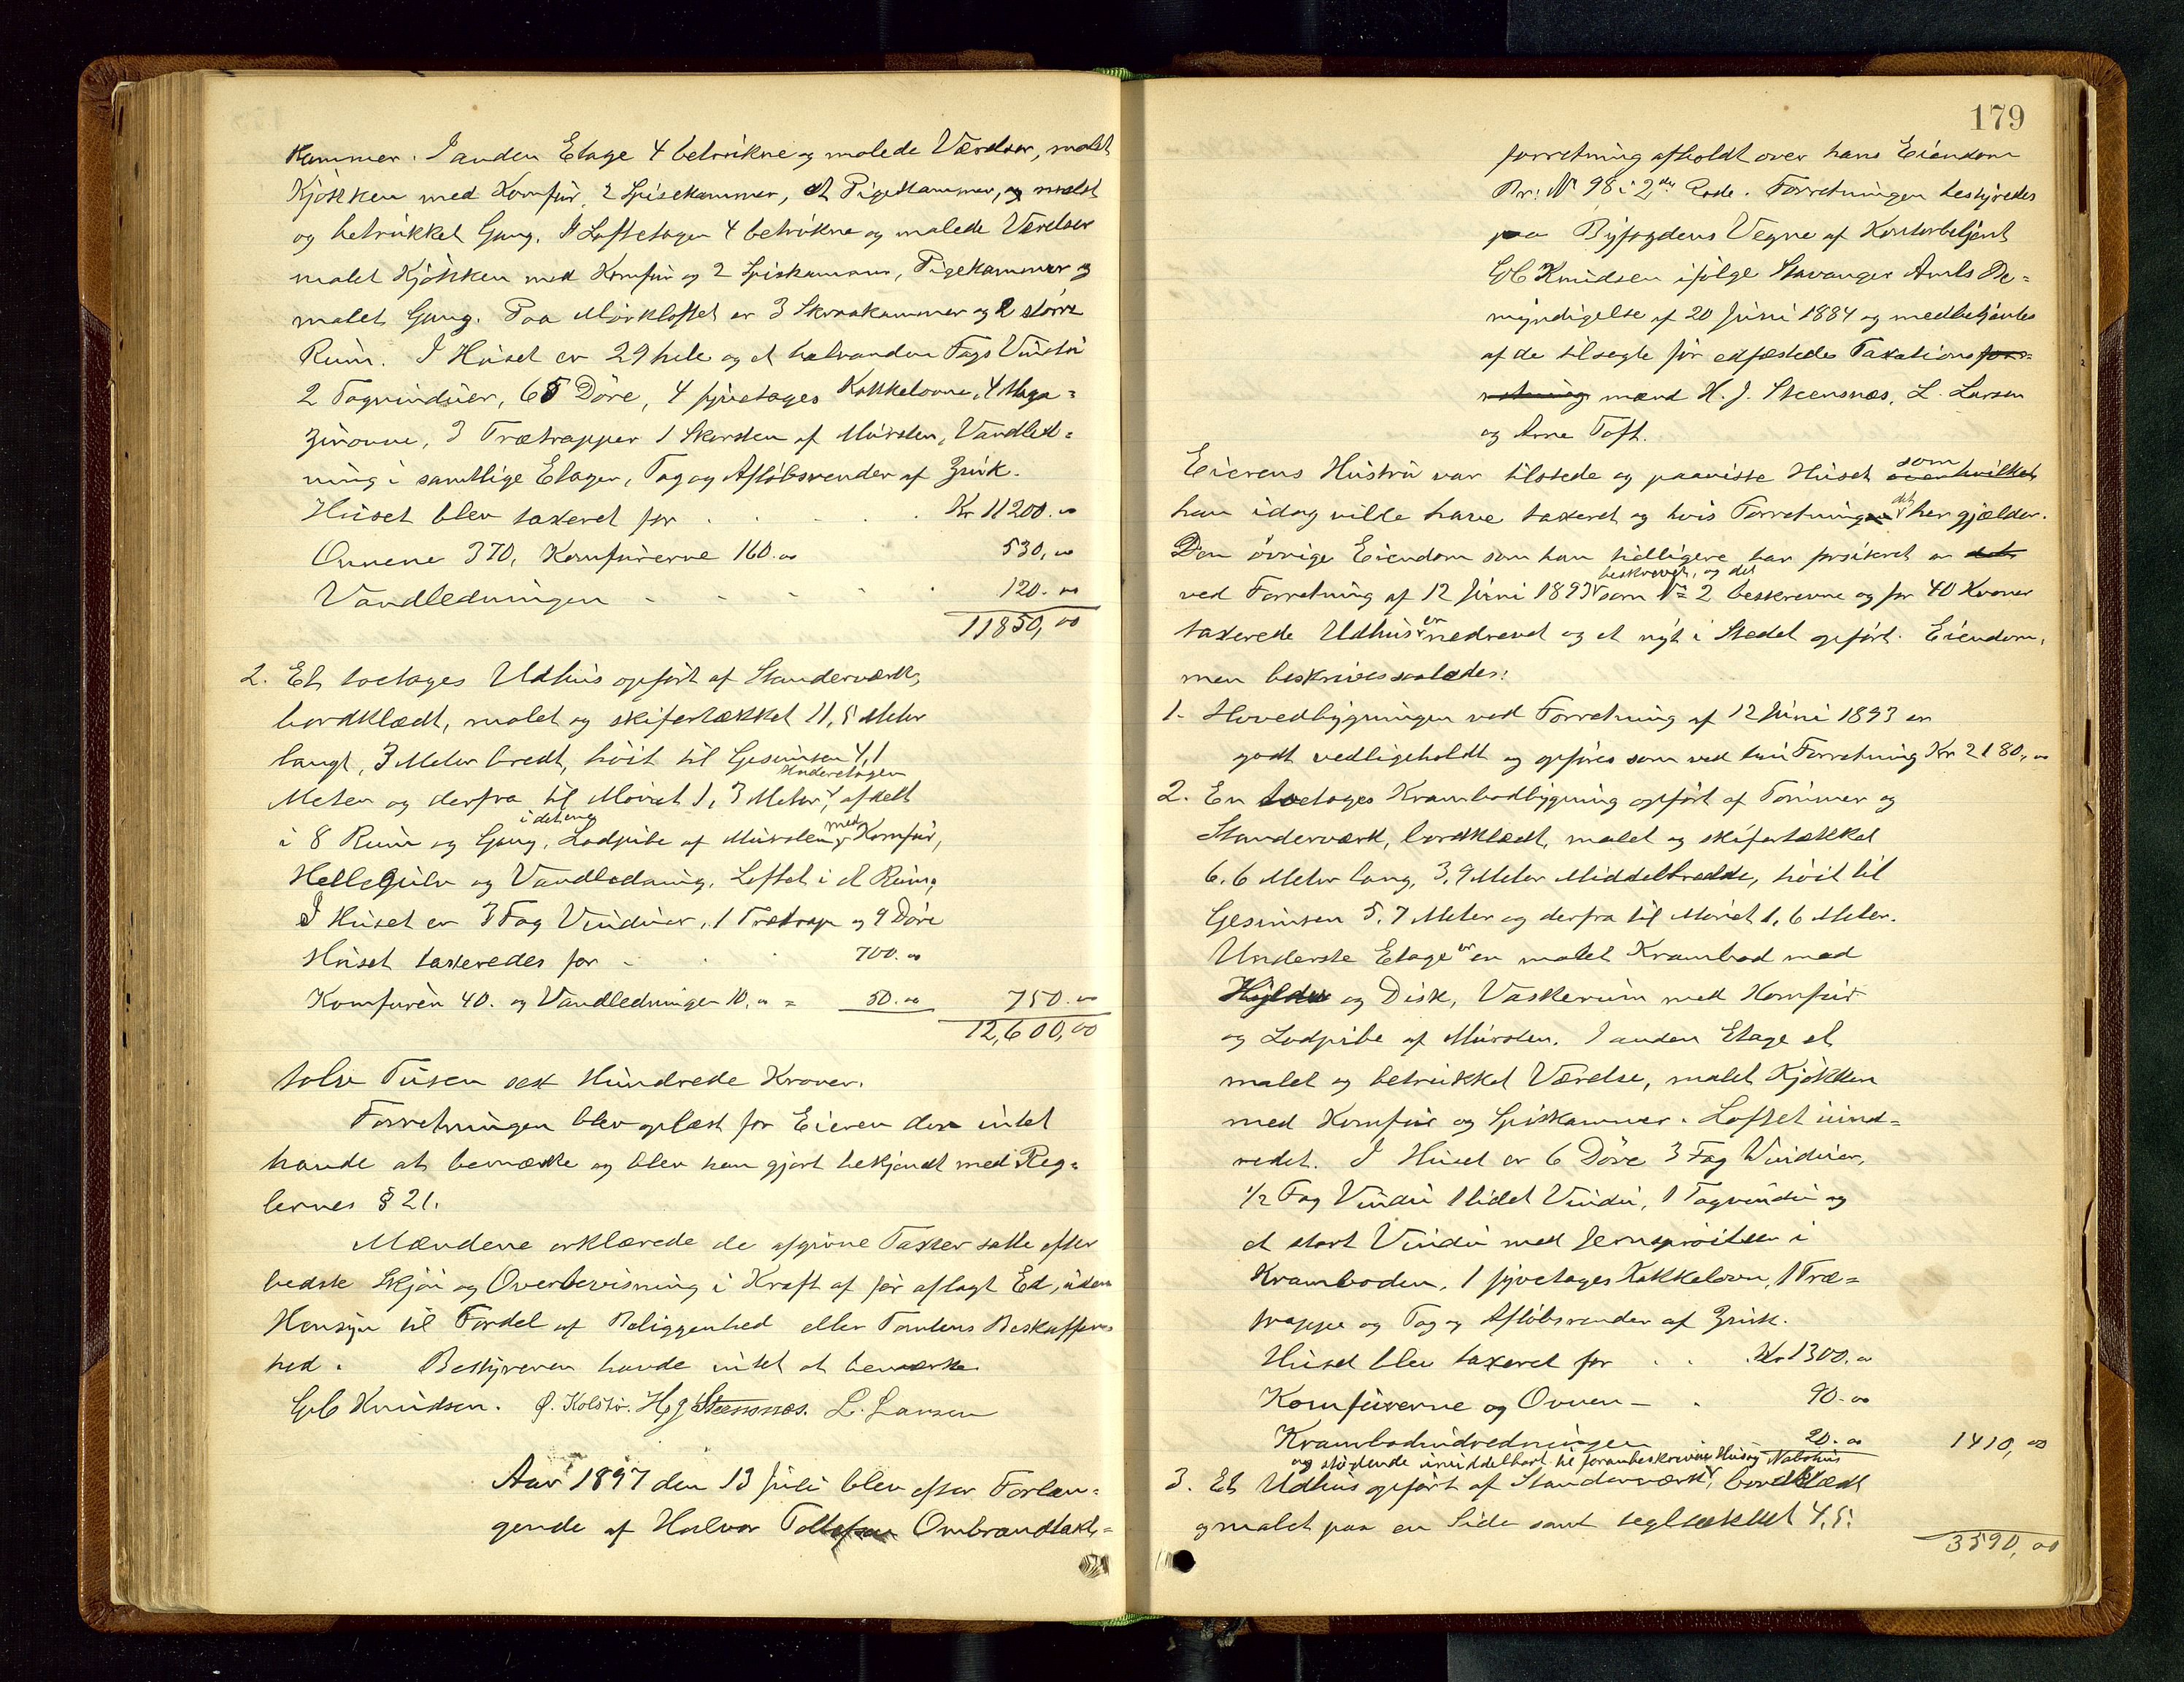 Kammer. I anden Etage 4 betrukne og malede Værelser, malet
Kjøkken med Komfur, 2 Spisekammer, et Pigekammer, og malet
og betrukket Gang. I Loftetagen 4 betrukne og malede Værelser
malet Kjøkken med Komfur og 2 Spiskammer, Pigekammer og
malet Gang. Paa Mørkloftet er 3 Skraakammer og 2 større
Rum. I Huset er 29 hele og et halvanden Fags Vindu
2 Tagvinduer, 65 Døre, 4 fyretages Kakkelovne, 4 Maga=
zinovne, 3 Trætrapper 1 Skorsten af Mursten, Vandled=
ning i samtlige Etager, Tag og Afløbsrender af Zink.
Huset blev taxeret for . . . . Kr 11200.00
Ovnene 370, Komfurerne 160.00 530,00
Vandledningen - - - - 120.00
11850,00
2. Et toetages Udhus opført af Standerværk,
bordklædt, malet og skifertækket 11,5 Meter
langt, 3 Meter bredt, høit til Gesimsen 4,1
Meter og derfra til Mønet 1,3 Meter, Underetagen afdelt
i 8 Rum og Gang, i det ene Lodpibe af Mursten med Komfur,
Hellegulv og Vandledning. Loftet i et Rum,
I Huset er 3 Fag Vinduer, 1 Trætrap og 9 Døre
Huset taxeredes for - . . 700.00
Komfuren 40. og Vandledningen 10,00 = 50.00 750.00
12,600,00
tolv Tusen sex Hundrede Kroner.
Forretningen blev oplæst for Eieren der intet
havde at bemærke og blev han gjort bekjendt med Reg=
lernes § 21.
Mændene erklærede de afgivne Taxter satte efter
bedste Skjøn og Overbevisning i Kraft af før aflagt Ed, uden
Hensyn til Fordel af Beliggenhed eller Tomtens Beskaffen=
hed. Bestyreren havde intet at bemærke
Gl Knudsen. Ø. Kolstø. H J Steensnæs. L. Larsen
Aar 1897 den 13 Juli blev efter Forlan=
gende af Halvor Tollefsen Ombrandtakt=
179
forretning afholdt over hans Eiendom
Br: No 98 i 2den Rode. Forretningen bestyredes
paa Byfogdens Vegne af Kontorbetjent
Knudsen ifølge Stavanger Amts Be=
myndigelse af 20 Juni 1884 og medbetjentes
af de tilsagte før edfæstede Taxations for=
retning mænd H. J. Steensnæs, L. Larsen
og Arne Toft.
Eierens Hustru var tilstede og paaviste Huset som over hvilket
han idag vilde have taxeret og hvis Forretningen det her gjælder.
Den øvrige Eiendom som han tidligere har forsikret er det
ved Forretning af 12 Juni 1893 beskrevet, og det som No 2 beskrevne og for 40 Kroner
taxerede Udhus er nedrevet og et nyt i Stedet opført. Eiendom,
men beskrives saaledes:
1. Hovedbygningen ved Forretning af 12 Juni 1893 er
godt vedligeholdt og opføres som ved hin Forretning Kr 2180,00
2. En toetages Krambodbygning opført af Tømmer og
Standerværk, bordklædt, malet og skifertækket
6,6 Meter lang, 3,9 Meter Middelbredde, høit til
Gesimsen 5,7 Meter og derfra til Mønet 1,6 Meter.
Underste Etage er en malet Krambod med
Hylder og Disk, Vaskerum med Komfur
og Lodpibe af Mursten. I anden Etage et
malet og betrukket Værelse, malet Kjøkken
med Komfur og Spiskammer. Loftet uind=
redet. I Huset er 6 Døre 3 Fag Vinduer,
1/2 Fag Vindu 1 lidet Vindu, 1 Tagvindu og
et stort Vindu med Jernsproitser i
Kramboden, 1 fyretages Kakkelovn, 1 Træ=
trappe og Tag og Afløbsrender af Zink.
Huset blev taxeret for . . . Kr 1300.00
Komfurerne og Ovnen - . 90.00
Krambodindredningen 20.00 1410,00
3. Et Udhus opført af Standerværk og stødende umiddelbart til foranbeskrevne Hus og Nabohus, bordklædt
og malet paa en Side samt tegltækket 4,5.
3590,00